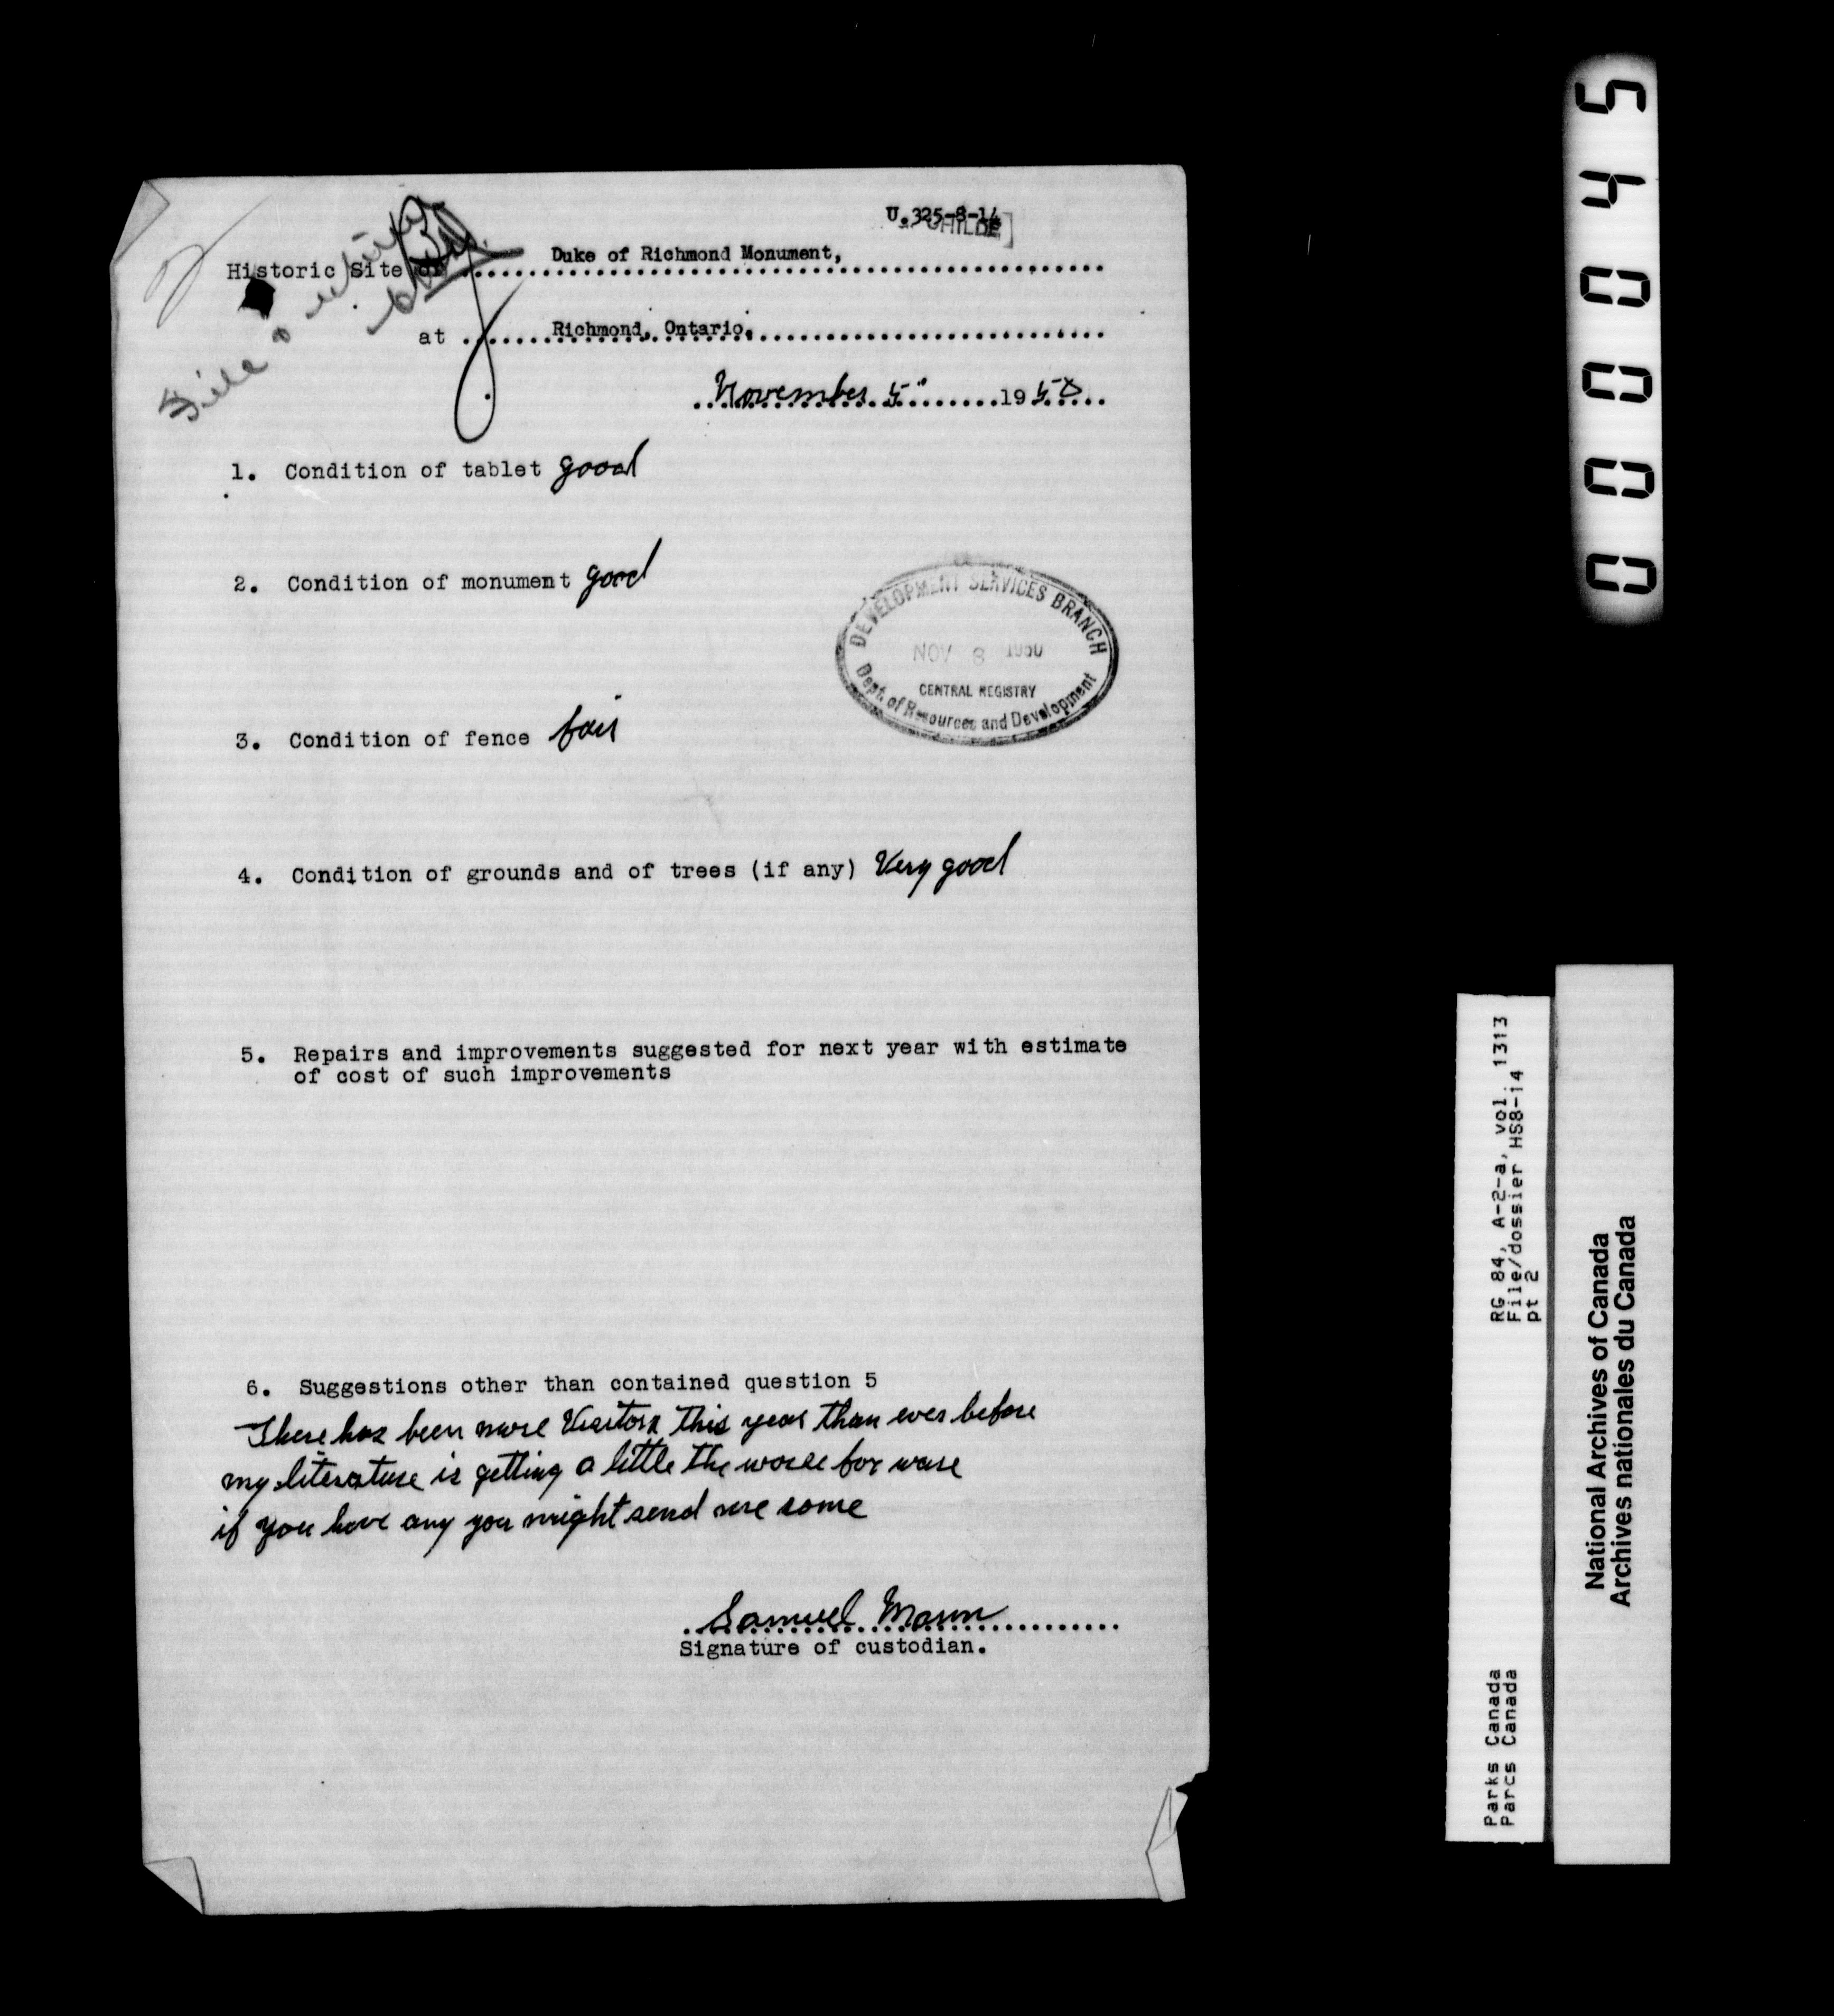 U.325-8-14
Historic Site of Duke of Richmond Monument,
at Richmond, Ontario.
File
November 5" 1950
1. Condition of tablet good
2. Condition of monument good
DEVELOPMENT SERVICES BRANCH
NOV 8 1950
CENTRAL REGISTRY
Dept. of Resources and Development
3. Condition of fence fair
4. Condition of grounds and of trees (if any) Very good
5. Repairs and improvements suggested for next year with estimate
of cost of such improvements
6. Suggestions other than contained question 5
There has been more Visitors this year than ever before
my literature is getting a little the worse for ware
if you have any you might send me some
Samuel
Signature of custodian.
000045
RG 84, A-2-a, vol. 1313
File/dossier HS8-14
pt 2
Parks Canada
Parcs Canada
National Archives of Canada
Archives nationales du Canada